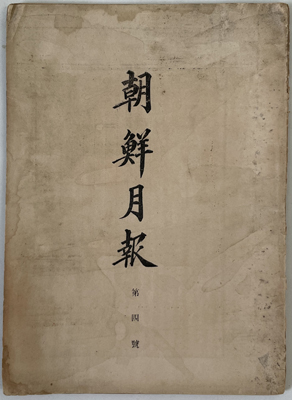 朝鮮月報
第四號